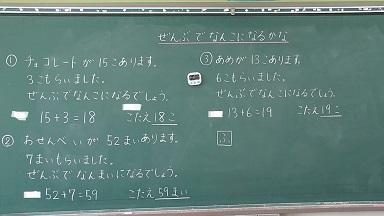 ぜんぶでなんこになるかな
① チョコレートが15こあります。
3こもらいました。
ぜんぶでなんこになるでしょう。
15+3=18 こたえ18こ
② おせんべいが52まいあります。
7まいもらいました。
ぜんぶでなんまいになるでしょう。
52+7=59 こたえ59まい
③ あめが13こあります。
6こもらいました。
ぜんぶでなんこになるでしょう。
13+6=19 こたえ19こ
ふ